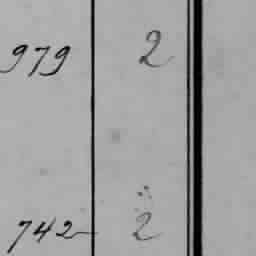 979 2
742 2